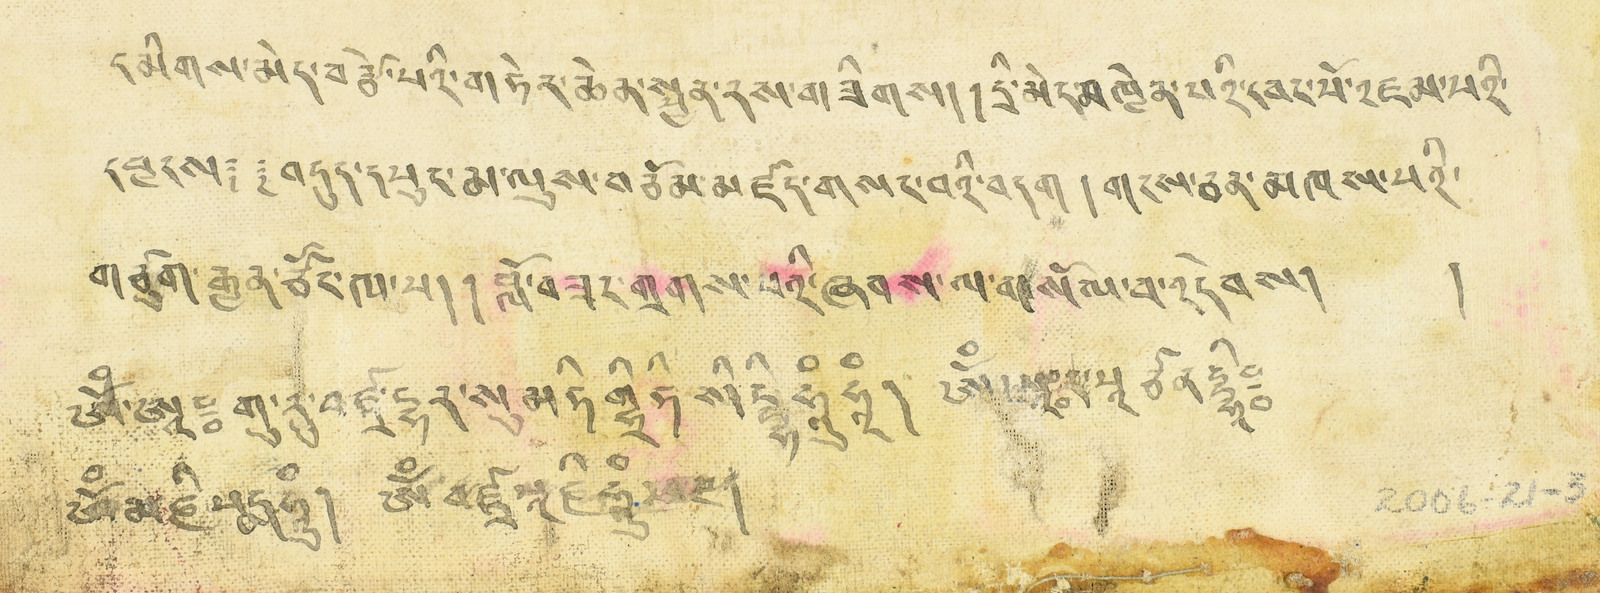 དམིགས་མེད་བརྩེ་བའི་གཏེར་ཆེན་སྤྱན་རས་གཟིགས། །དྲི་མེད་མཁྱེན་པའི་དབང་པོ་འཇམ་པའི་
དབྱངས༔ ༔ བདུད་དཔུང་མ་ལུས་བཅོམ་མཛད་གསང་བའི་བདག །གངས་ཅན་མཁས་པའི་
གཙུག་རྒྱན་ཙོང་ཁ་པ། །བློ་བཟང་གྲགས་པའི་ཞབས་ལ་གསོལ་བ་འདེབས། །
ཨོཾ་ཨཱཿ གུ་རུ་བཛྲ་དྷར་སུ་མ་ཏི་ཀཱིརྟི་སིདྡྷི་ཧཱུྃ་ཧཱུྃ།
ཨོཾ་མ་ཎི་པདྨེ་ཧཱུྃ། ཨོཾ་བཛྲ་པཱ་ཎི་ཧཱུྃ
2006-21-3